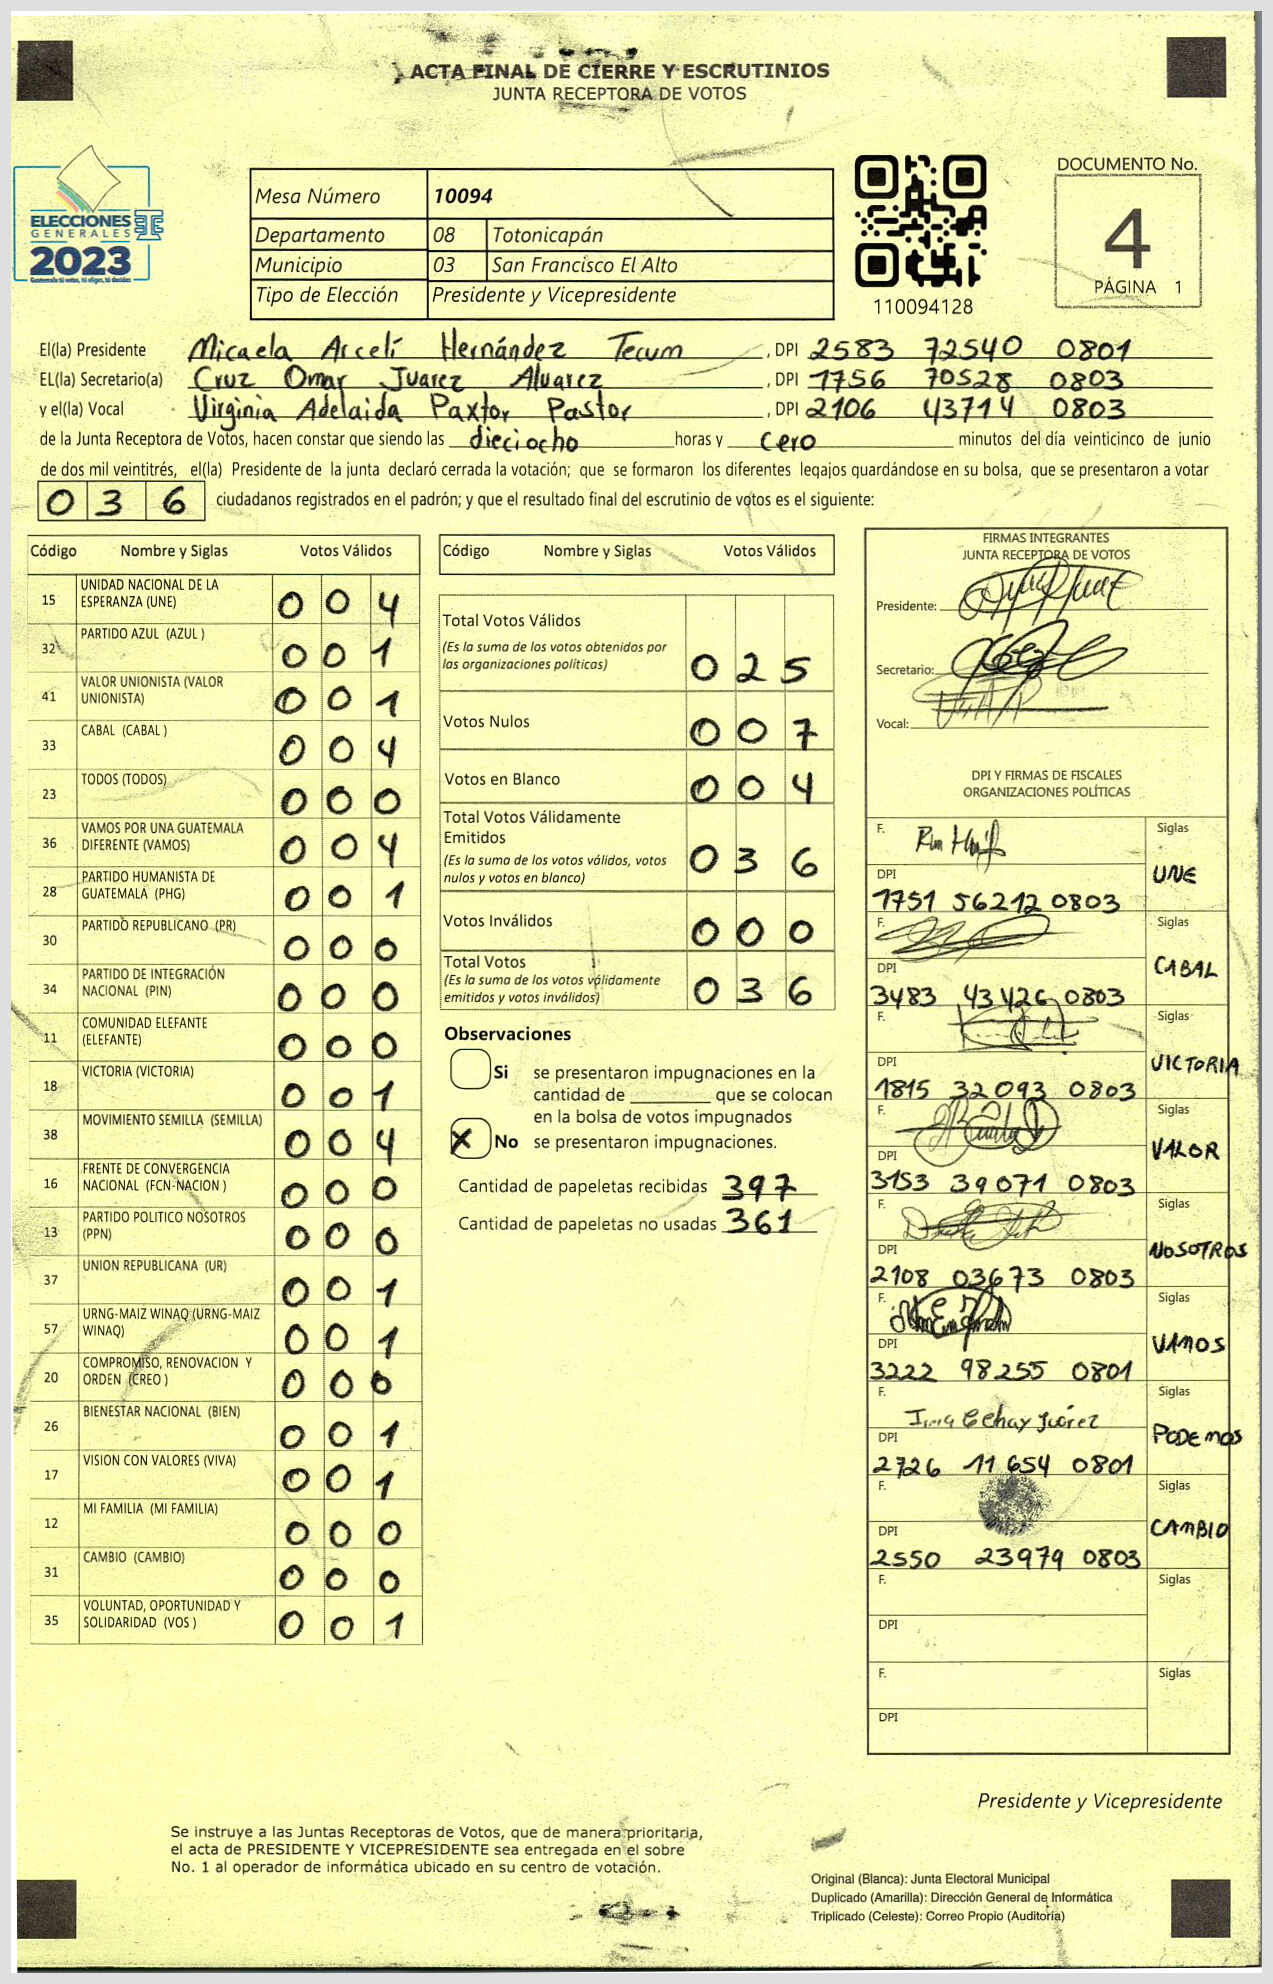 ACTA FINAL DE CIERRE Y ESCRUTINIOS
JUNTA RECEPTORA DE VOTOS
ELECCIONES
GENERALES
2023
Mesa Número 10094
Departamento 08 Totonicapán
Municipio 03 San Francisco El Alto
Tipo de Elección Presidente y Vicepresidente
110094128
DOCUMENTO No.
4
PÁGINA 1
El(la) Presidente Micaela Arcelí Hernández Tecum , DPI 2583 72540 0801
EL(la) Secretario(a) Cruz Omar Juarez Alvarez , DPI 1756 70528 0803
y el(la) Vocal Virginia Adelaida Paxtor Pastor , DPI 2106 43714 0803
de la Junta Receptora de Votos, hacen constar que siendo las dieciocho horas y cero minutos del día veinticinco de junio
de dos mil veintitrés, el(la) Presidente de la junta declaró cerrada la votación; que se formaron los diferentes legajos quardándose en su bolsa, que se presentaron a votar
0 3 6 ciudadanos registrados en el padrón; y que el resultado final del escrutinio de votos es el siguiente:
Código Nombre y Siglas Votos Válidos
15 UNIDAD NACIONAL DE LA ESPERANZA (UNE) 0 0 4
32 PARTIDO AZUL (AZUL ) 0 0 1
41 VALOR UNIONISTA (VALOR UNIONISTA) 0 0 1
33 CABAL (CABAL ) 0 0 4
23 TODOS (TODOS) 0 0 0
36 VAMOS POR UNA GUATEMALA DIFERENTE (VAMOS) 0 0 4
28 PARTIDO HUMANISTA DE GUATEMALA (PHG) 0 0 1
30 PARTIDO REPUBLICANO (PR) 0 0 0
34 PARTIDO DE INTEGRACIÓN NACIONAL (PIN) 0 0 0
11 COMUNIDAD ELEFANTE (ELEFANTE) 0 0 0
18 VICTORIA (VICTORIA) 0 0 1
38 MOVIMIENTO SEMILLA (SEMILLA) 0 0 4
16 FRENTE DE CONVERGENCIA NACIONAL (FCN-NACION ) 0 0 0
13 PARTIDO POLITICO NOSOTROS (PPN) 0 0 0
37 UNION REPUBLICANA (UR) 0 0 1
57 URNG-MAIZ WINAQ (URNG-MAIZ WINAQ) 0 0 1
20 COMPROMISO, RENOVACION Y ORDEN (CREO ) 0 0 0
26 BIENESTAR NACIONAL (BIEN) 0 0 1
17 VISION CON VALORES (VIVA) 0 0 1
12 MI FAMILIA (MI FAMILIA) 0 0 0
31 CAMBIO (CAMBIO) 0 0 0
35 VOLUNTAD, OPORTUNIDAD Y SOLIDARIDAD (VOS ) 0 0 1
Código Nombre y Siglas Votos Válidos
Total Votos Válidos
(Es la suma de los votos obtenidos por
las organizaciones políticas) 0 2 5
Votos Nulos 0 0 7
Votos en Blanco 0 0 4
Total Votos Válidamente
Emitidos
(Es la suma de los votos válidos, votos
nulos y votos en blanco) 0 3 6
Votos Inválidos 0 0 0
Total Votos
(Es la suma de los votos válidamente
emitidos y votos inválidos) 0 3 6
Observaciones
Si se presentaron impugnaciones en la
cantidad de ________ que se colocan
en la bolsa de votos impugnados
X No se presentaron impugnaciones.
Cantidad de papeletas recibidas 397
Cantidad de papeletas no usadas 361
FIRMAS INTEGRANTES
JUNTA RECEPTORA DE VOTOS
Presidente:
Secretario:
Vocal:
DPI Y FIRMAS DE FISCALES
ORGANIZACIONES POLÍTICAS
F. Siglas
UNE
DPI
1751 56212 0803
F. Siglas
CABAL
DPI
3483 43426 0803
F. Siglas
VICTORIA
DPI
1815 32093 0803
F. Siglas
VALOR
DPI
3153 39071 0803
F. Siglas
NOSOTROS
DPI
2108 03673 0803
F. Siglas
VAMOS
DPI
3222 98255 0801
F. Siglas
PODEMOS
DPI
2726 11654 0801
F. Siglas
CAMBIO
DPI
2550 23979 0803
F. Siglas
DPI
F. Siglas
DPI
Presidente y Vicepresidente
Se instruye a las Juntas Receptoras de Votos, que de manera prioritaria,
el acta de PRESIDENTE Y VICEPRESIDENTE sea entregada en el sobre
No. 1 al operador de informática ubicado en su centro de votación.
Original (Blanca): Junta Electoral Municipal
Duplicado (Amarilla): Dirección General de Informática
Triplicado (Celeste): Correo Propio (Auditoría)